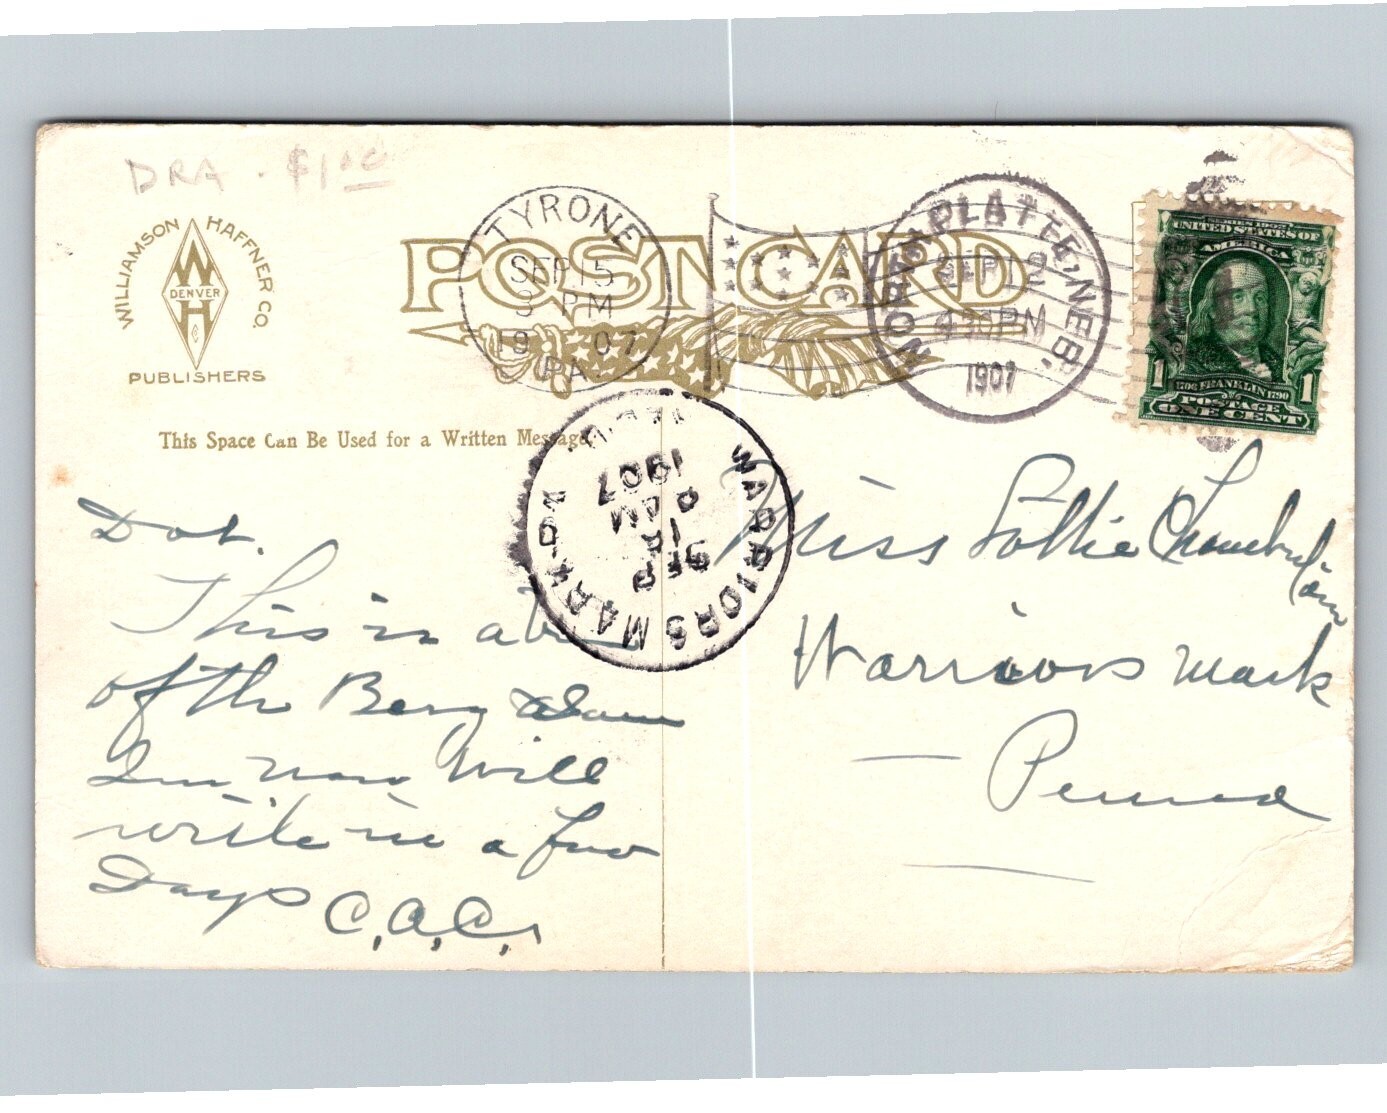 DRA - $1.00
WILLIAMSON HAFFNER CO.
W
DENVER
H
PUBLISHERS
POST CARD
TYRONE
SEP 15
3 PM
1907
PA.
NORTH PLATTE, NEB.
SEP 12
4 30 PM
1907
SERIES 1902
UNITED STATES OF
AMERICA
1706 FRANKLIN 1790
1 POSTAGE 1
ONE CENT
This Space Can Be Used for a Written Message
WARRIORS MARK
SEP
AM
1907
Dot.
This is a
of the Berg Dam
Im now Will
write in a few
Days C.A.C.
Miss Lottie Chamberlain
Warriors Mark
Penna